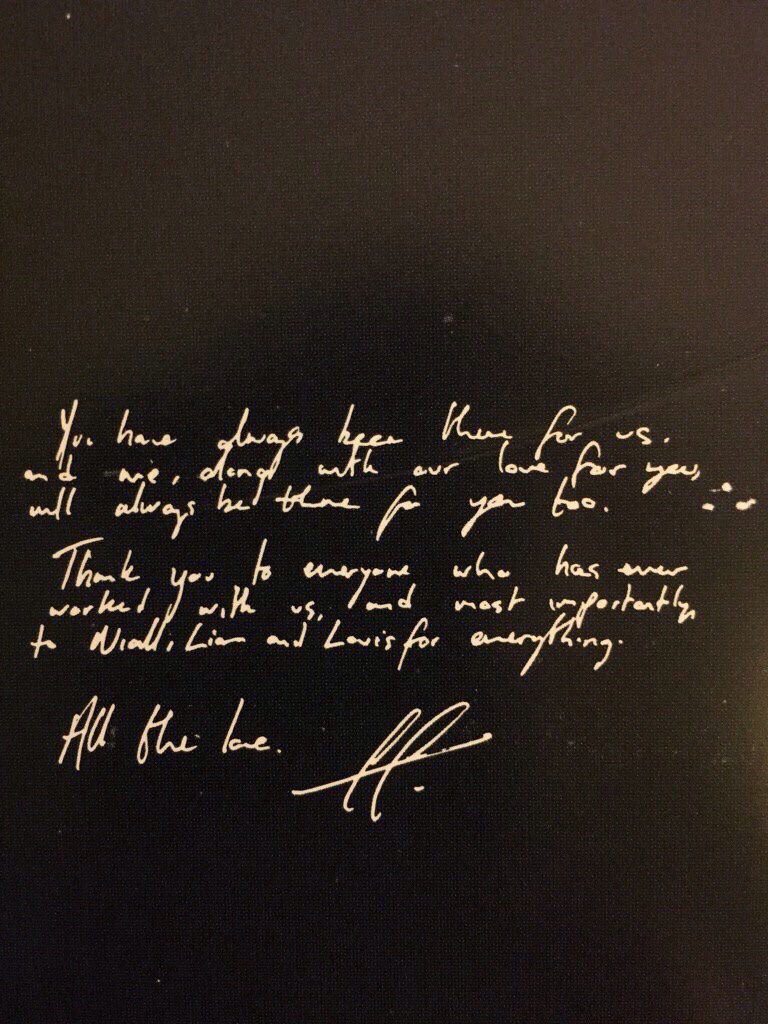 You have always been there for us.
and we, along with our love for you,
will always be there for you too.
Thank you to everyone who has ever
worked with us, and most importantly,
to Niall, Liam and Louis for everything.
All the love.